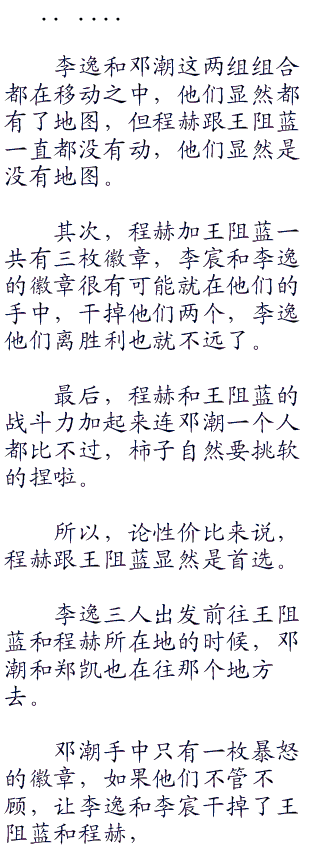 李逸和邓潮这两组组合
都在移动之中，他们显然都
有了地图，但程赫跟王阻蓝
一直都没有动，他们显然是
没有地图。
其次，程赫加王阻蓝一
共有三枚徽章，李宸和李逸
的徽章很有可能就在他们的
手中，干掉他们两个，李逸
他们离胜利也就不远了。
最后，程赫和王阻蓝的
战斗力加起来连邓潮一个人
都比不过，柿子自然要挑软
的捏啦。
所以，论性价比来说，
程赫跟王阻蓝显然是首选。
李逸三人出发前往王阻
蓝和程赫所在地的时候，邓
潮和郑凯也在往那个地方
去。
邓潮手中只有一枚暴怒
的徽章，如果他们不管不
顾，让李逸和李宸干掉了王
阻蓝和程赫，